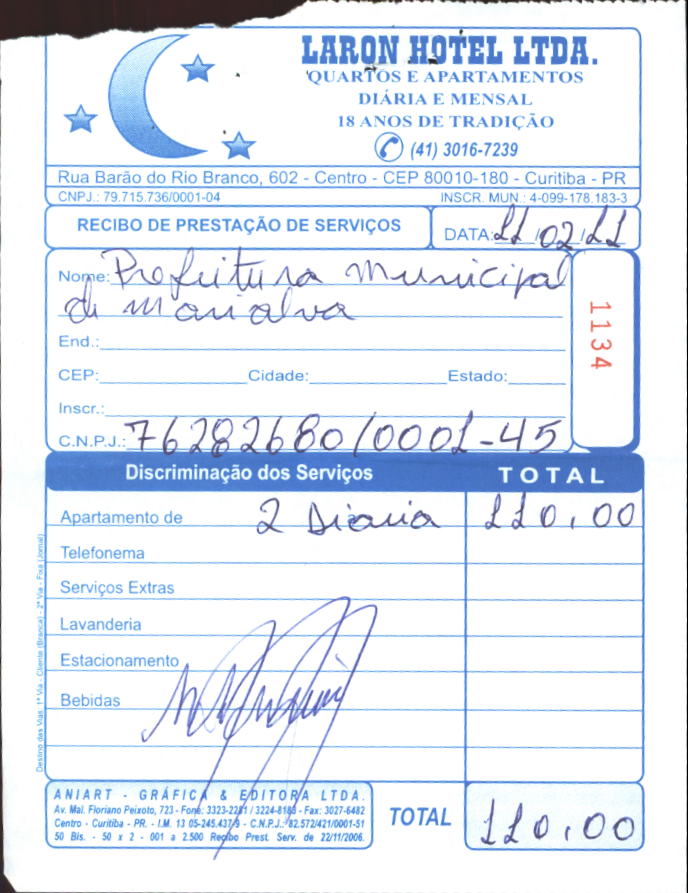 LARON HOTEL LTDA.
QUARTOS E APARTAMENTOS
DIÁRIA E MENSAL
18 ANOS DE TRADIÇÃO
(41) 3016-7239
Rua Barão do Rio Branco, 602 - Centro - CEP 80010-180 - Curitiba - PR
CNPJ.: 79.715.736/0001-04 INSCR. MUN.: 4-099-178.183-3
RECIBO DE PRESTAÇÃO DE SERVIÇOS DATA: 11/02/11
Nome: Prefeitura Municipal
de Marialva
1134
End.:
CEP: Cidade: Estado:
Inscr.:
C.N.P.J.: 76282680/0001-45
Discriminação dos Serviços TOTAL
Apartamento de 2 Diaria 110,00
Telefonema
Serviços Extras
Lavanderia
Estacionamento
Bebidas
Destino das Vias: 1ª Via - Cliente (Branca) - 2ª Via - Fixa (Jornal)
ANIART - GRÁFICA & EDITORA LTDA.
Av. Mal. Floriano Peixoto, 723 - Fone: 3323-2281 / 3224-8185 - Fax: 3027-6482
Centro - Curitiba - PR. - I.M. 13 05-245.437-9 - C.N.P.J.: 82.572/421/0001-51
50 Bls. - 50 x 2 - 001 a 2.500 Recibo Prest. Serv. de 22/11/2006.
TOTAL 110,00